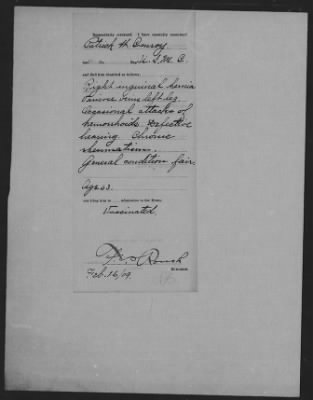 Respectfully returned. I have carefully examined
Patrick H. Conroy
U. S. M. C.
and find him disabled as follows:
Right inguinal hernia
Varicose veins left leg
Occasional attacks of
hemorrhoids. Defective
hearing. Chronic
rheumatism.
General condition fair.
Age 63.
admission to the Home.
Vaccinated.
Surgeon.
Feb. 16/09.